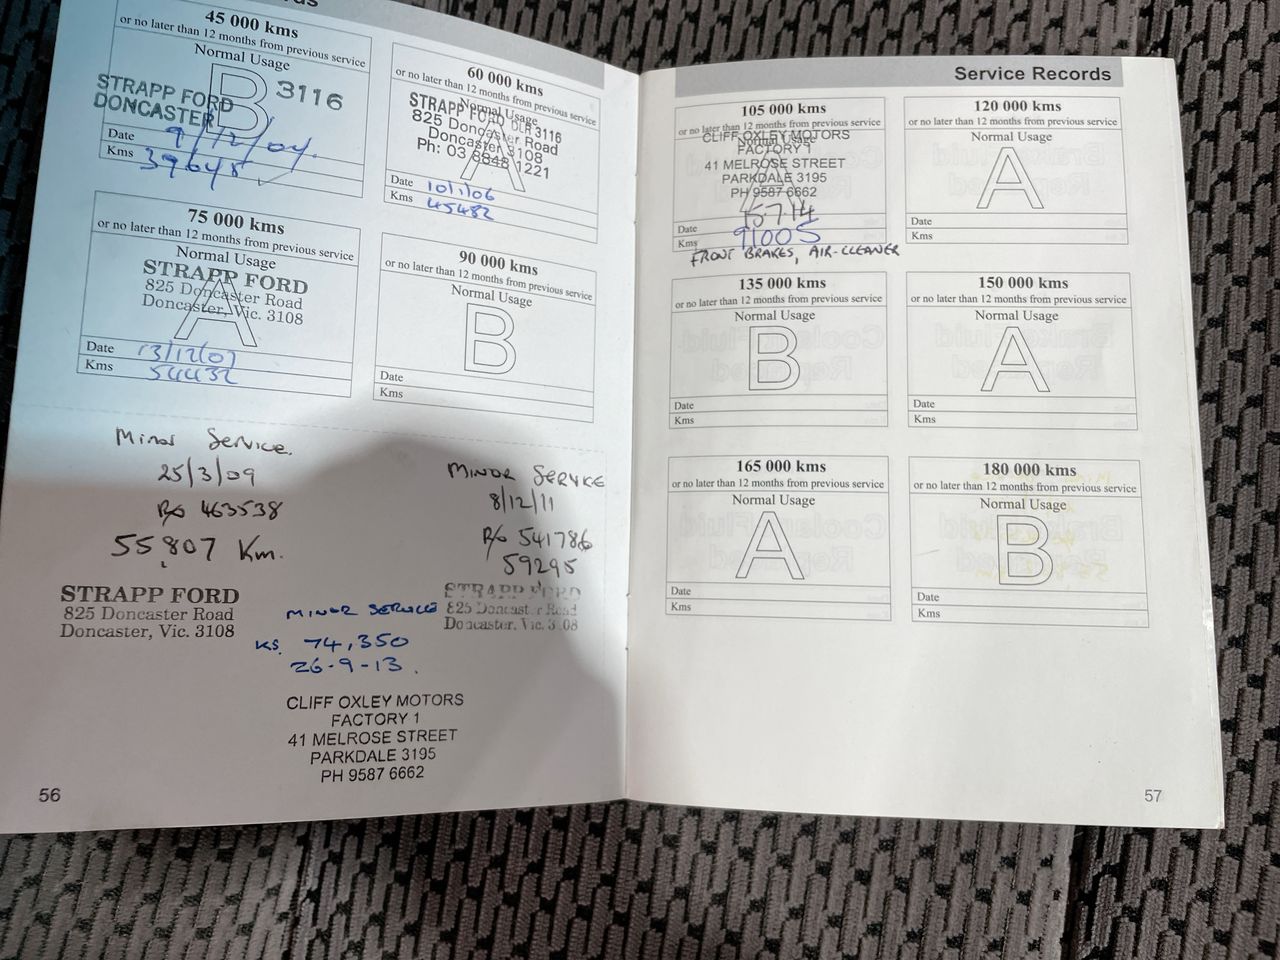 45 000 kms
or no later than 12 months from previous service
Normal Usage
B
STRAPP FORD 3116
DONCASTER
Date 9/12/04.
Kms 39648
60 000 kms
or no later than 12 months from previous service
Normal Usage
A
STRAPP FORD DLR 3116
825 Doncaster Road
Doncaster 3108
Ph: 03 8848 1221
Date 10/1/06
Kms 45482
75 000 kms
or no later than 12 months from previous service
Normal Usage
A
STRAPP FORD
825 Doncaster Road
Doncaster, Vic. 3108
Date 13/12/07
Kms 54432
90 000 kms
or no later than 12 months from previous service
Normal Usage
B
Date
Kms
Minor Service.
25/3/09
R/o 463538
55,807 Km.
STRAPP FORD
825 Doncaster Road
Doncaster, Vic. 3108
MINOR SERVICE
8/12/11
R/o 541786
59295
STRAPP FORD
825 Doncaster Road
Doncaster, Vic. 3108
MINOR SERVICE
KS. 74,350
26-9-13.
CLIFF OXLEY MOTORS
FACTORY 1
41 MELROSE STREET
PARKDALE 3195
PH 9587 6662
56
Service Records
105 000 kms
or no later than 12 months from previous service
Normal Usage
CLIFF OXLEY MOTORS
FACTORY 1
41 MELROSE STREET
PARKDALE 3195
PH 9587 6662
Date 15-7-14
Kms 91005
FRONT BRAKES, AIR-CLEANER
120 000 kms
or no later than 12 months from previous service
Normal Usage
A
Date
Kms
135 000 kms
or no later than 12 months from previous service
Normal Usage
B
Date
Kms
150 000 kms
or no later than 12 months from previous service
Normal Usage
A
Date
Kms
165 000 kms
or no later than 12 months from previous service
Normal Usage
A
Date
Kms
180 000 kms
or no later than 12 months from previous service
Normal Usage
B
Date
Kms
57